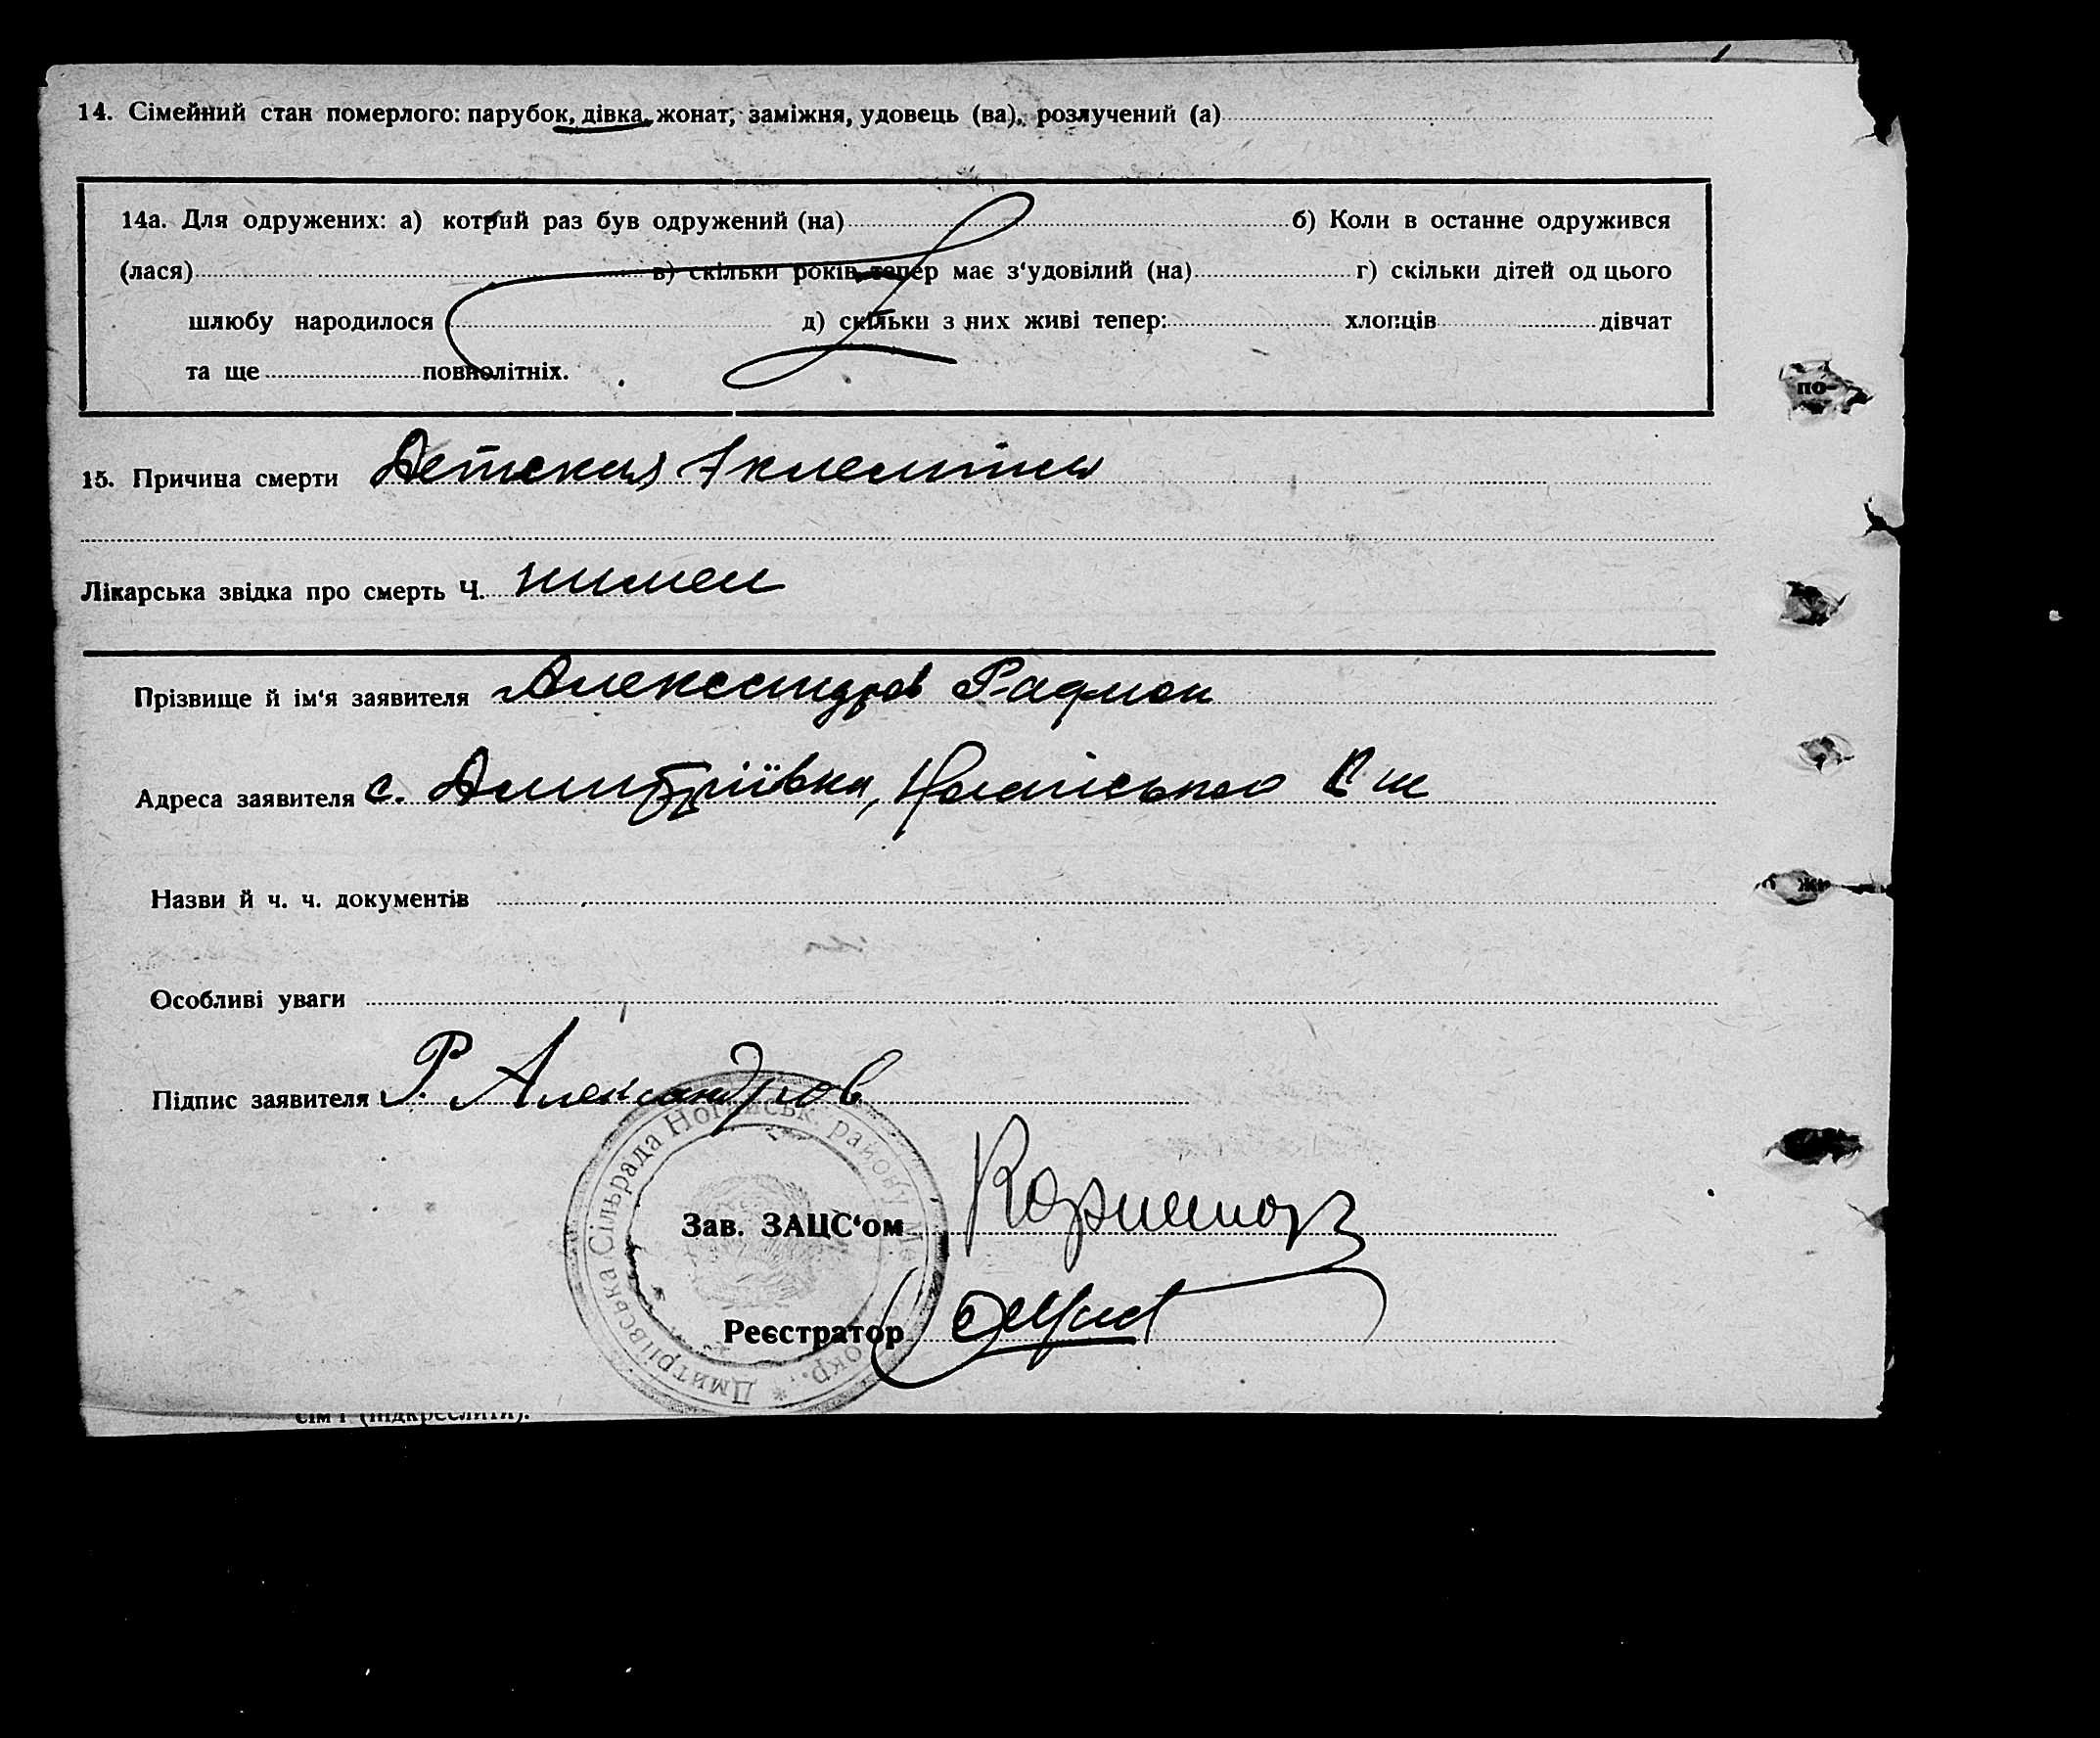 14. Сімейний стан померлого: парубок, дівка, жонат, заміжня, удовець (ва), розлучений (а)
14а. Для одружених: а) котрий раз був одружений (на) б) Коли в останне одружився
(лася) в) скільки років тепер має з‘удовілий (на) г) скільки дітей од цього
шлюбу народилося д) скільки з них живі тепер: хлопців дівчат
та ще повнолітніх.
15. Причина смерти Детская
Лікарська звідка про смерть Ч.
Прізвище й ім‘я заявителя Александров
Адреса заявителя с. Дмитріївка,
Назви й ч. ч. документів
Особливі уваги
Підпис заявителя Р. Александров
Дмитріївська Сільрада Ногайськ. району окр.
Зав. ЗАЦС‘ом
Реєстратор
сім‘ї (підкреслити).
по-